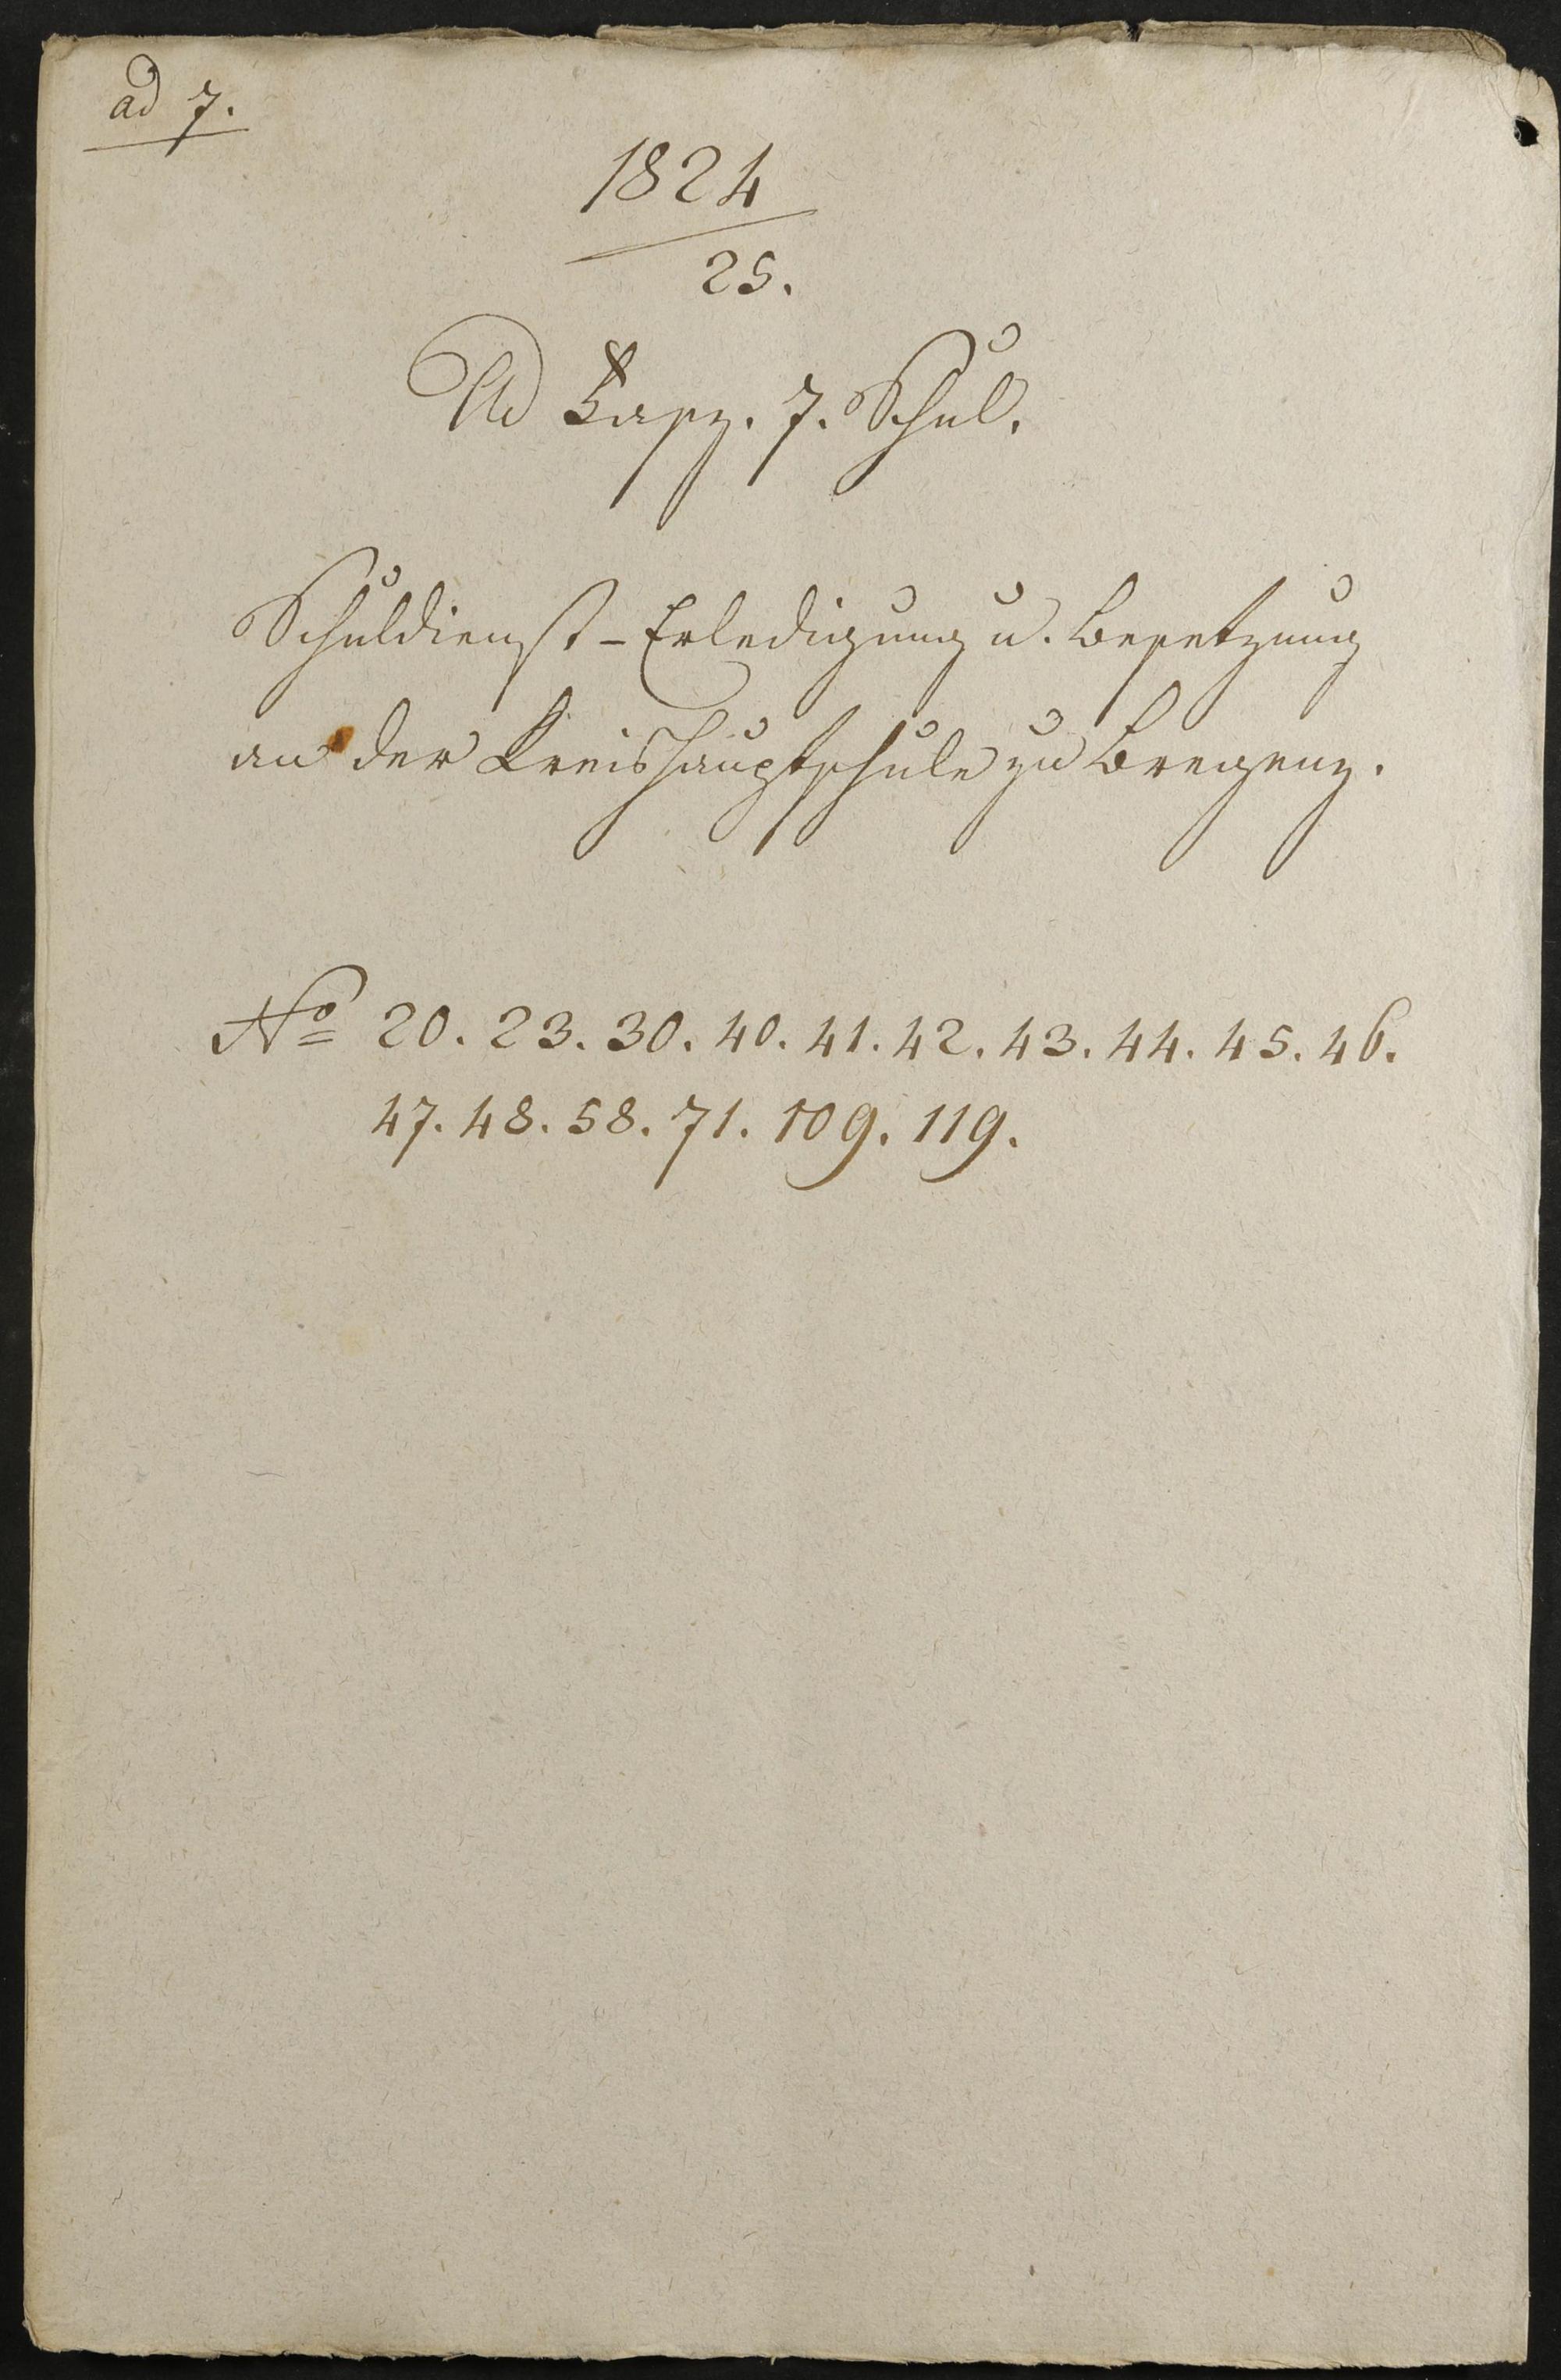 ad 7.
1824
25.
Ad Fasz. 7. Schul.
Schuldienst-Erledigung u. Besetzung
an der Kreishauptschule zu Bregenz.
No 20. 23. 30. 40. 41. 42. 43. 44. 45. 46.
47. 48. 58. 71. 109. 119.